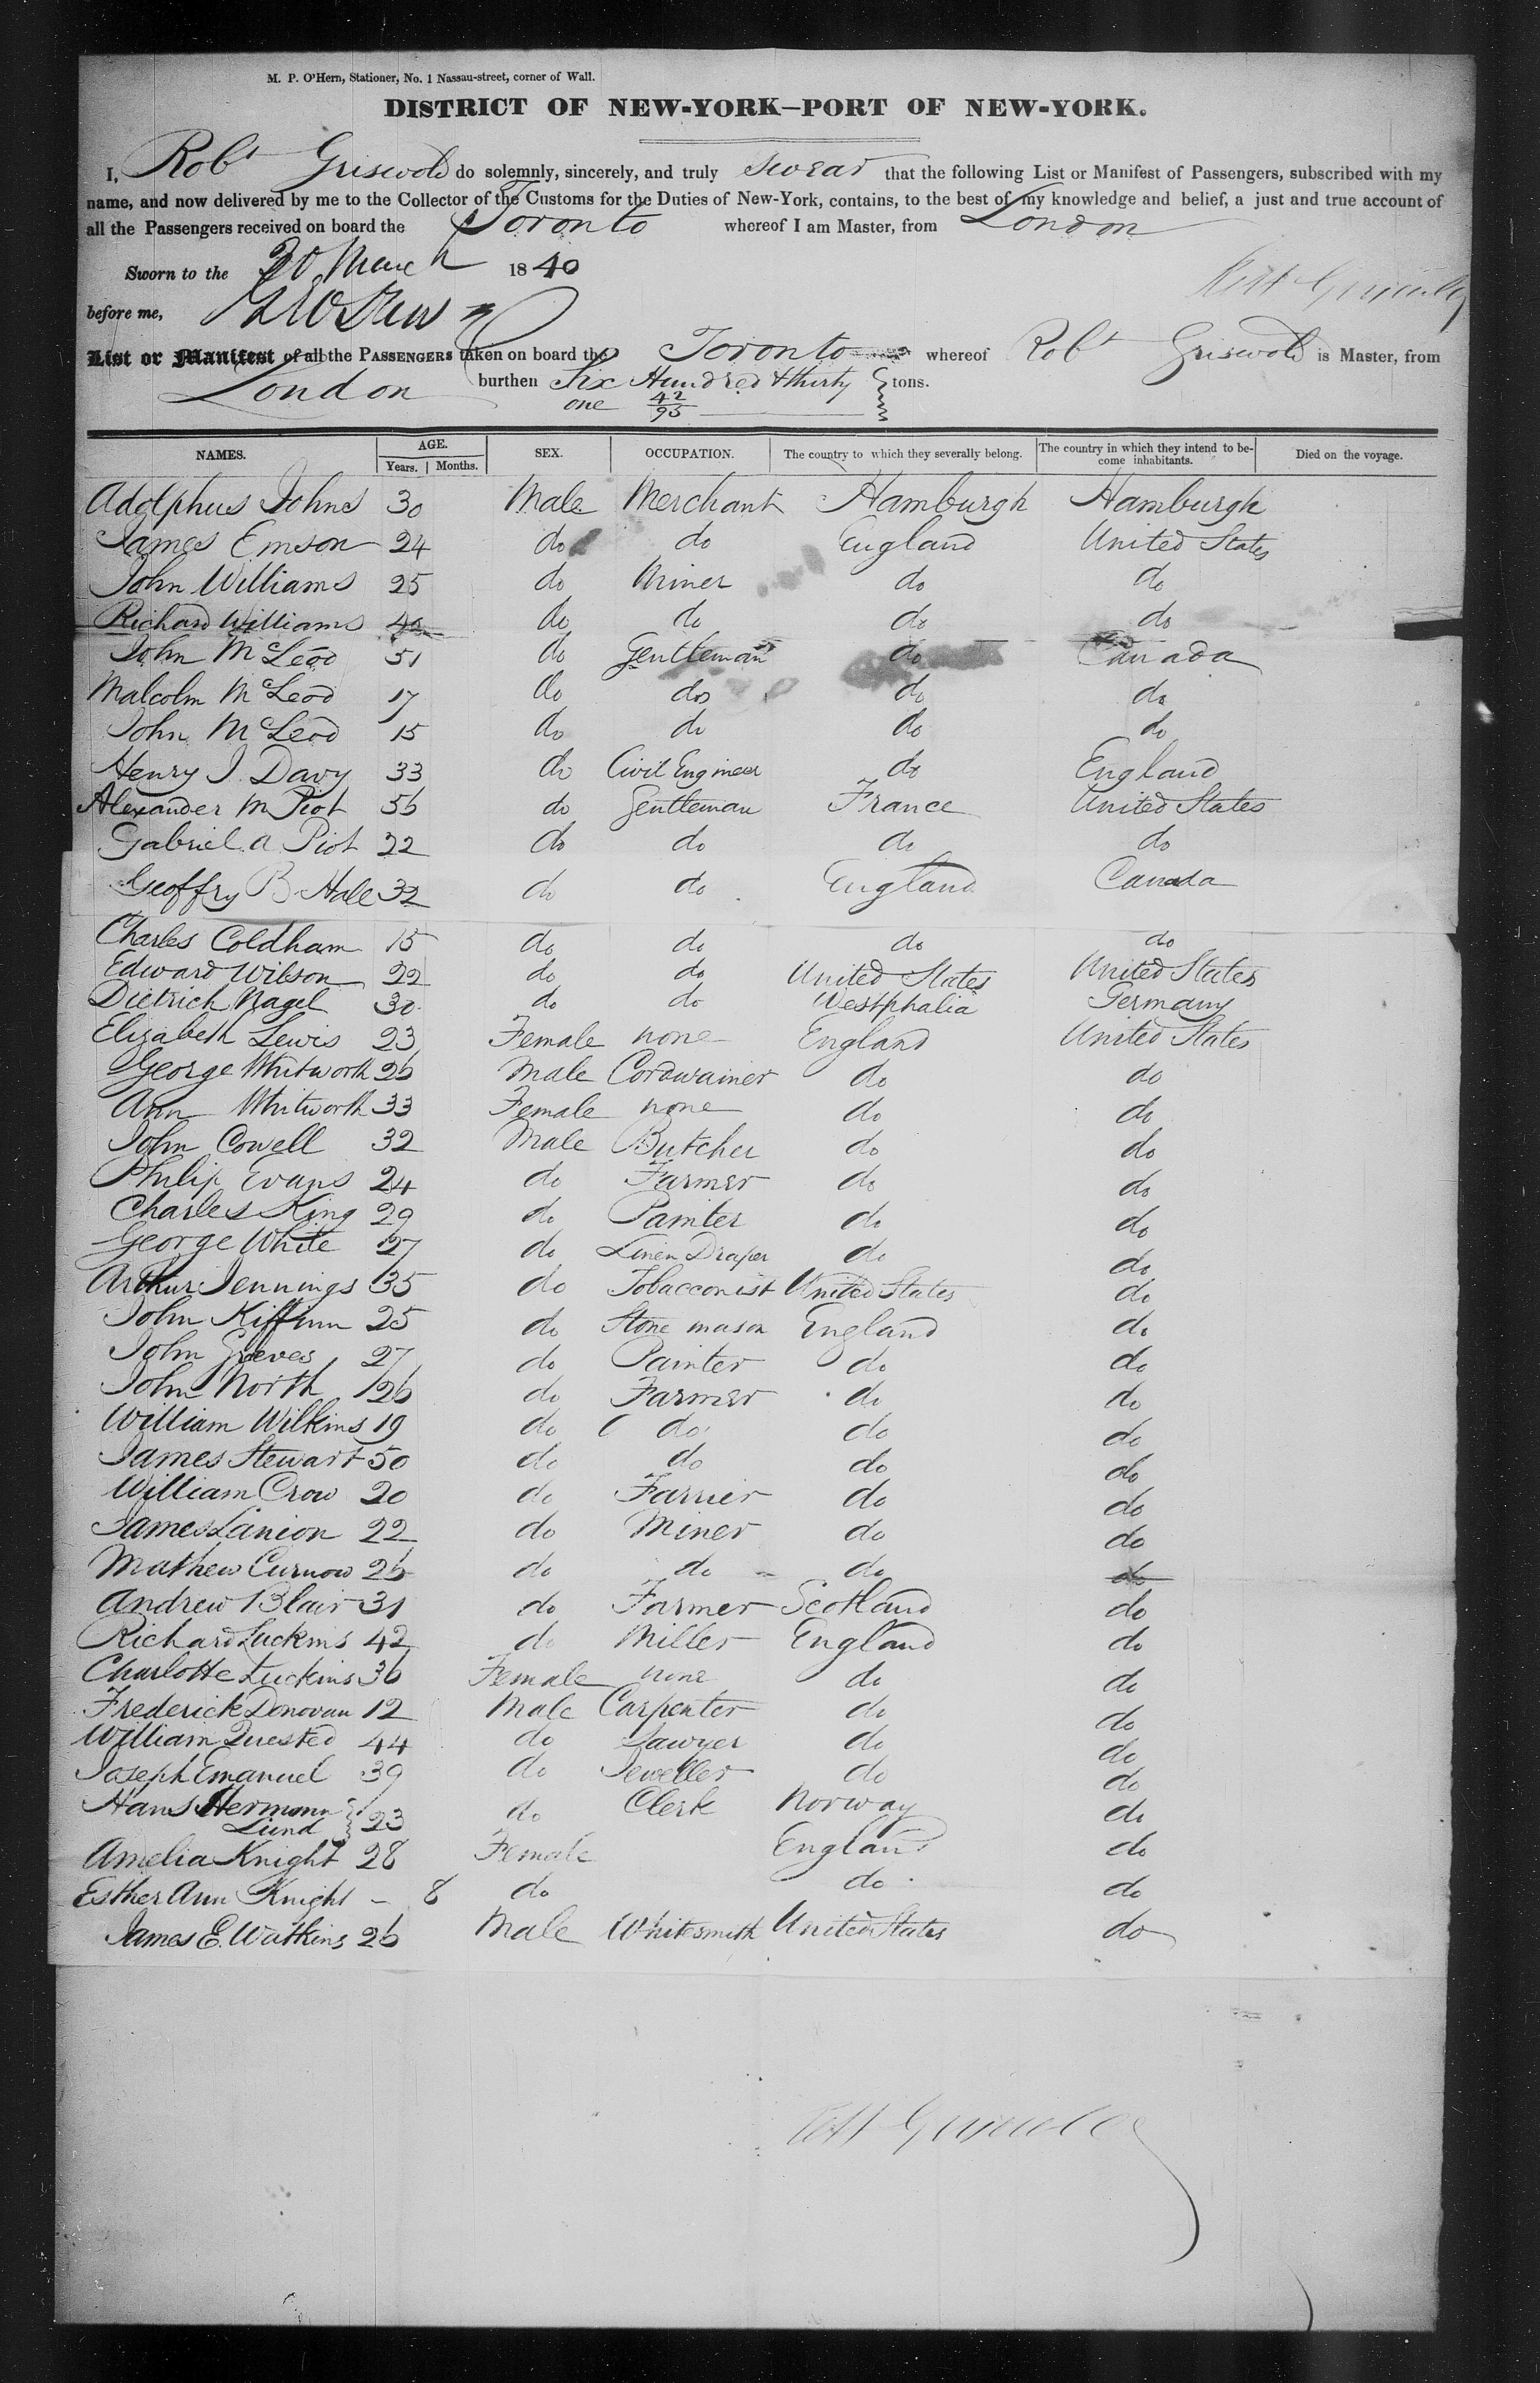 M. P. O'Hern, Stationer, No. 1 Nassau-street, corner of Wall.
DISTRICT OF NEW-YORK—PORT OF NEW-YORK.
I, Robt Griswold do solemnly, sincerely, and truly swear that the following List or Manifest of Passengers, subscribed with my
name, and now delivered by me to the Collector of the Customs for the Duties of New-York, contains, to the best of my knowledge and belief, a just and true account of
all the Passengers received on board the Toronto whereof I am Master, from London
Sworn to the 20 March 1840
before me,
List or Manifest of all the PASSENGERS taken on board the Toronto whereof Robt Griswold is Master, from
London burthen Six Hundred & thirty tons.
one 42/95
NAMES. AGE. SEX. OCCUPATION. The country to which they severally belong. The country in which they intend to become inhabitants. Died on the voyage.
Years. Months.
Adolphus Johns 30 Male Merchant Hamburgh Hamburgh
James Emson 24 do do England United States
John Williams 25 do Miner do do
Richard Williams 40 do do do do
John McLeod 51 do Gentleman do Canada
Malcolm McLeod 17 do do do do
John McLeod 15 do do do do
Henry J. Davy 33 do Civil Engineer do England
Alexander M Piot 56 do Gentleman France United States
Gabriel A Piot 22 do do do do
Geoffry B. Hale 32 do do England Canada
Charles Coldham 15 do do do do
Edward Wilson 22 do do United States United States
Dietrich Nagel 30 do do Westphalia Germany
Elizabeth Lewis 23 Female none England United States
George Whitworth 26 Male Cordwainer do do
Ann Whitworth 33 Female none do do
John Cowell 32 Male Butcher do do
Philip Evans 24 do Farmer do do
Charles King 29 do Painter do do
George White 27 do Linen Draper do do
Arthur Jennings 35 do Tobacconist United States do
John Kiffinn 25 do Stone mason England do
John Greves 27 do Painter do do
John North 26 do Farmer do do
William Wilkins 19 do do do do
James Stewart 50 do do do do
William Crow 20 do Farrier do do
James Lanion 22 do Miner do do
Mathew Curnow 26 do do do do
Andrew Blair 31 do Farmer Scotland do
Richard Luckins 42 do Miller England do
Charlotte Luckins 36 Female none do do
Frederick Donovan 12 Male Carpenter do do
William Quested 44 do Sawyer do do
Joseph Emanuel 39 do Jeweller do do
Hans Hermann
Lund 23 do Clerk Norway do
Amelia Knight 28 Female England do
Esther Ann Knight – 8 do do do
James E. Watkins 26 Male Whitesmith United States do